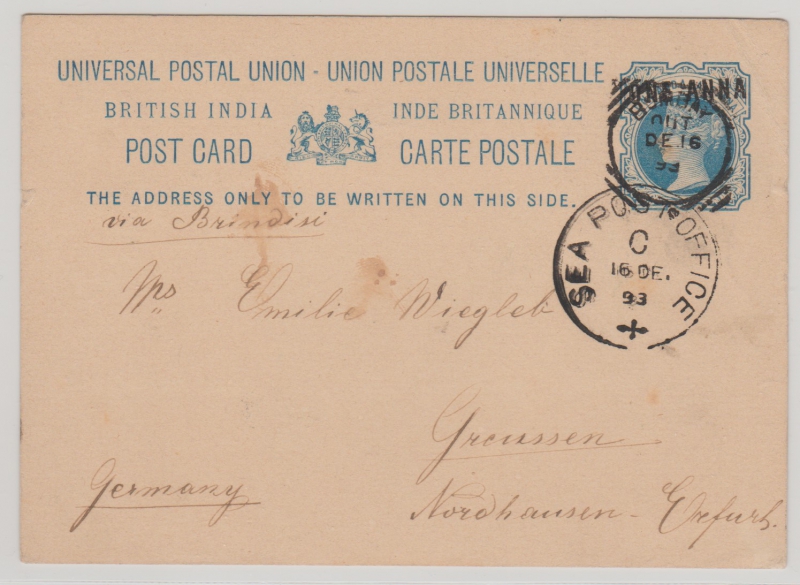 UNIVERSAL POSTAL UNION - UNION POSTALE UNIVERSELLE
ONE ANNA
BRITISH INDIA INDE BRITANNIQUE
POST CARD CARTE POSTALE
THE ADDRESS ONLY TO BE WRITTEN ON THIS SIDE.
BOMBAY
OUT
DE 16
93
SEA POST OFFICE
C
16 DE.
93
via Brindisi
Mrs Emilie Wiegleb
Greussen
Germany
Nordhausen - Erfurt.